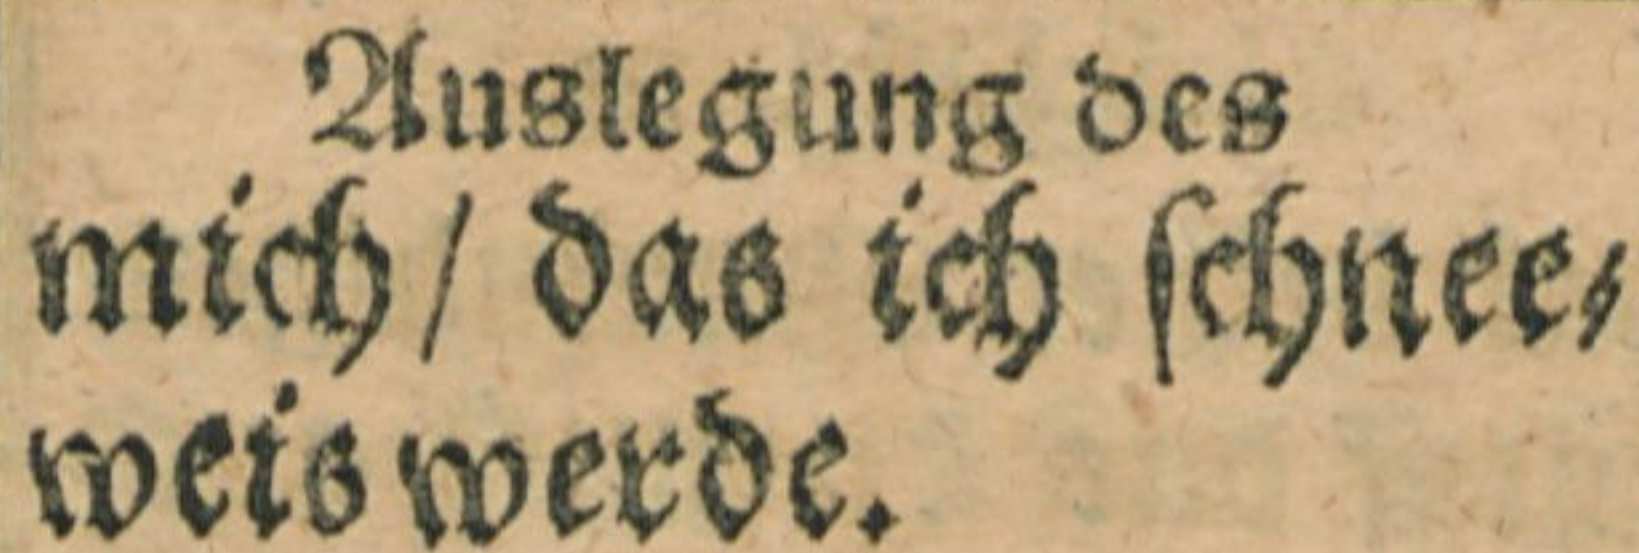 Auslegung des
mich/ das ich ſchnee⸗
weis werde.